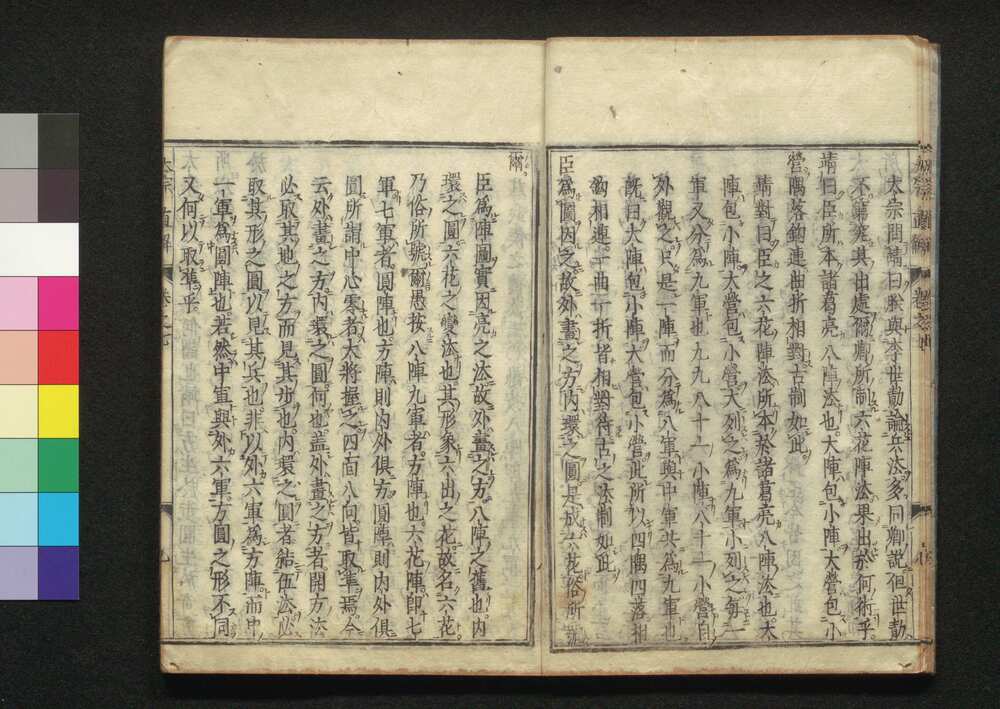 太宗問靖曰朕與李世勣論兵法多同卿說但世勣
不究出處爾卿所制六花陣法果出於何術乎
靖曰臣所本諸葛亮八陣法也大陣包小陣大營包小
營隅落鈎連曲折相對古制如此
靖對曰臣之六花陣法所本於諸葛亮八陣法也大
陣包小陣大營包小營大列之為九軍小列之每一
軍又分為九軍也九九八十一小陣八十一小營自
外觀之只是一陣而分為八軍與中軍共為九軍也
既曰大陣包小陣大營包小營此所以四隅四落相
鈎相連一曲一折皆相對待古之法制如此
臣為圖因之故外畫之方內環之圓是成六花俗所號
爾
臣為陣圖實因亮之法故外畫之方八陣之舊也內
環之圓六花之變法也其形象六出之花故名六花
乃俗所號爾愚按八陣九軍者方陣也六花陣即七
軍七軍者圓陣也方陣則內外俱方圓陣則內外俱
圓所謂中心零者大將握之四面八向皆取準焉今
云外畫之方內環之圓何也盖外畫之方者開方法
必取其地之方而見其步也內環之圓者結伍法必
取其形之圓以見其兵也非以外六軍為方陣而中
一軍為圓陣也若然中軍與外六軍方圓之形不同
又何以取準乎